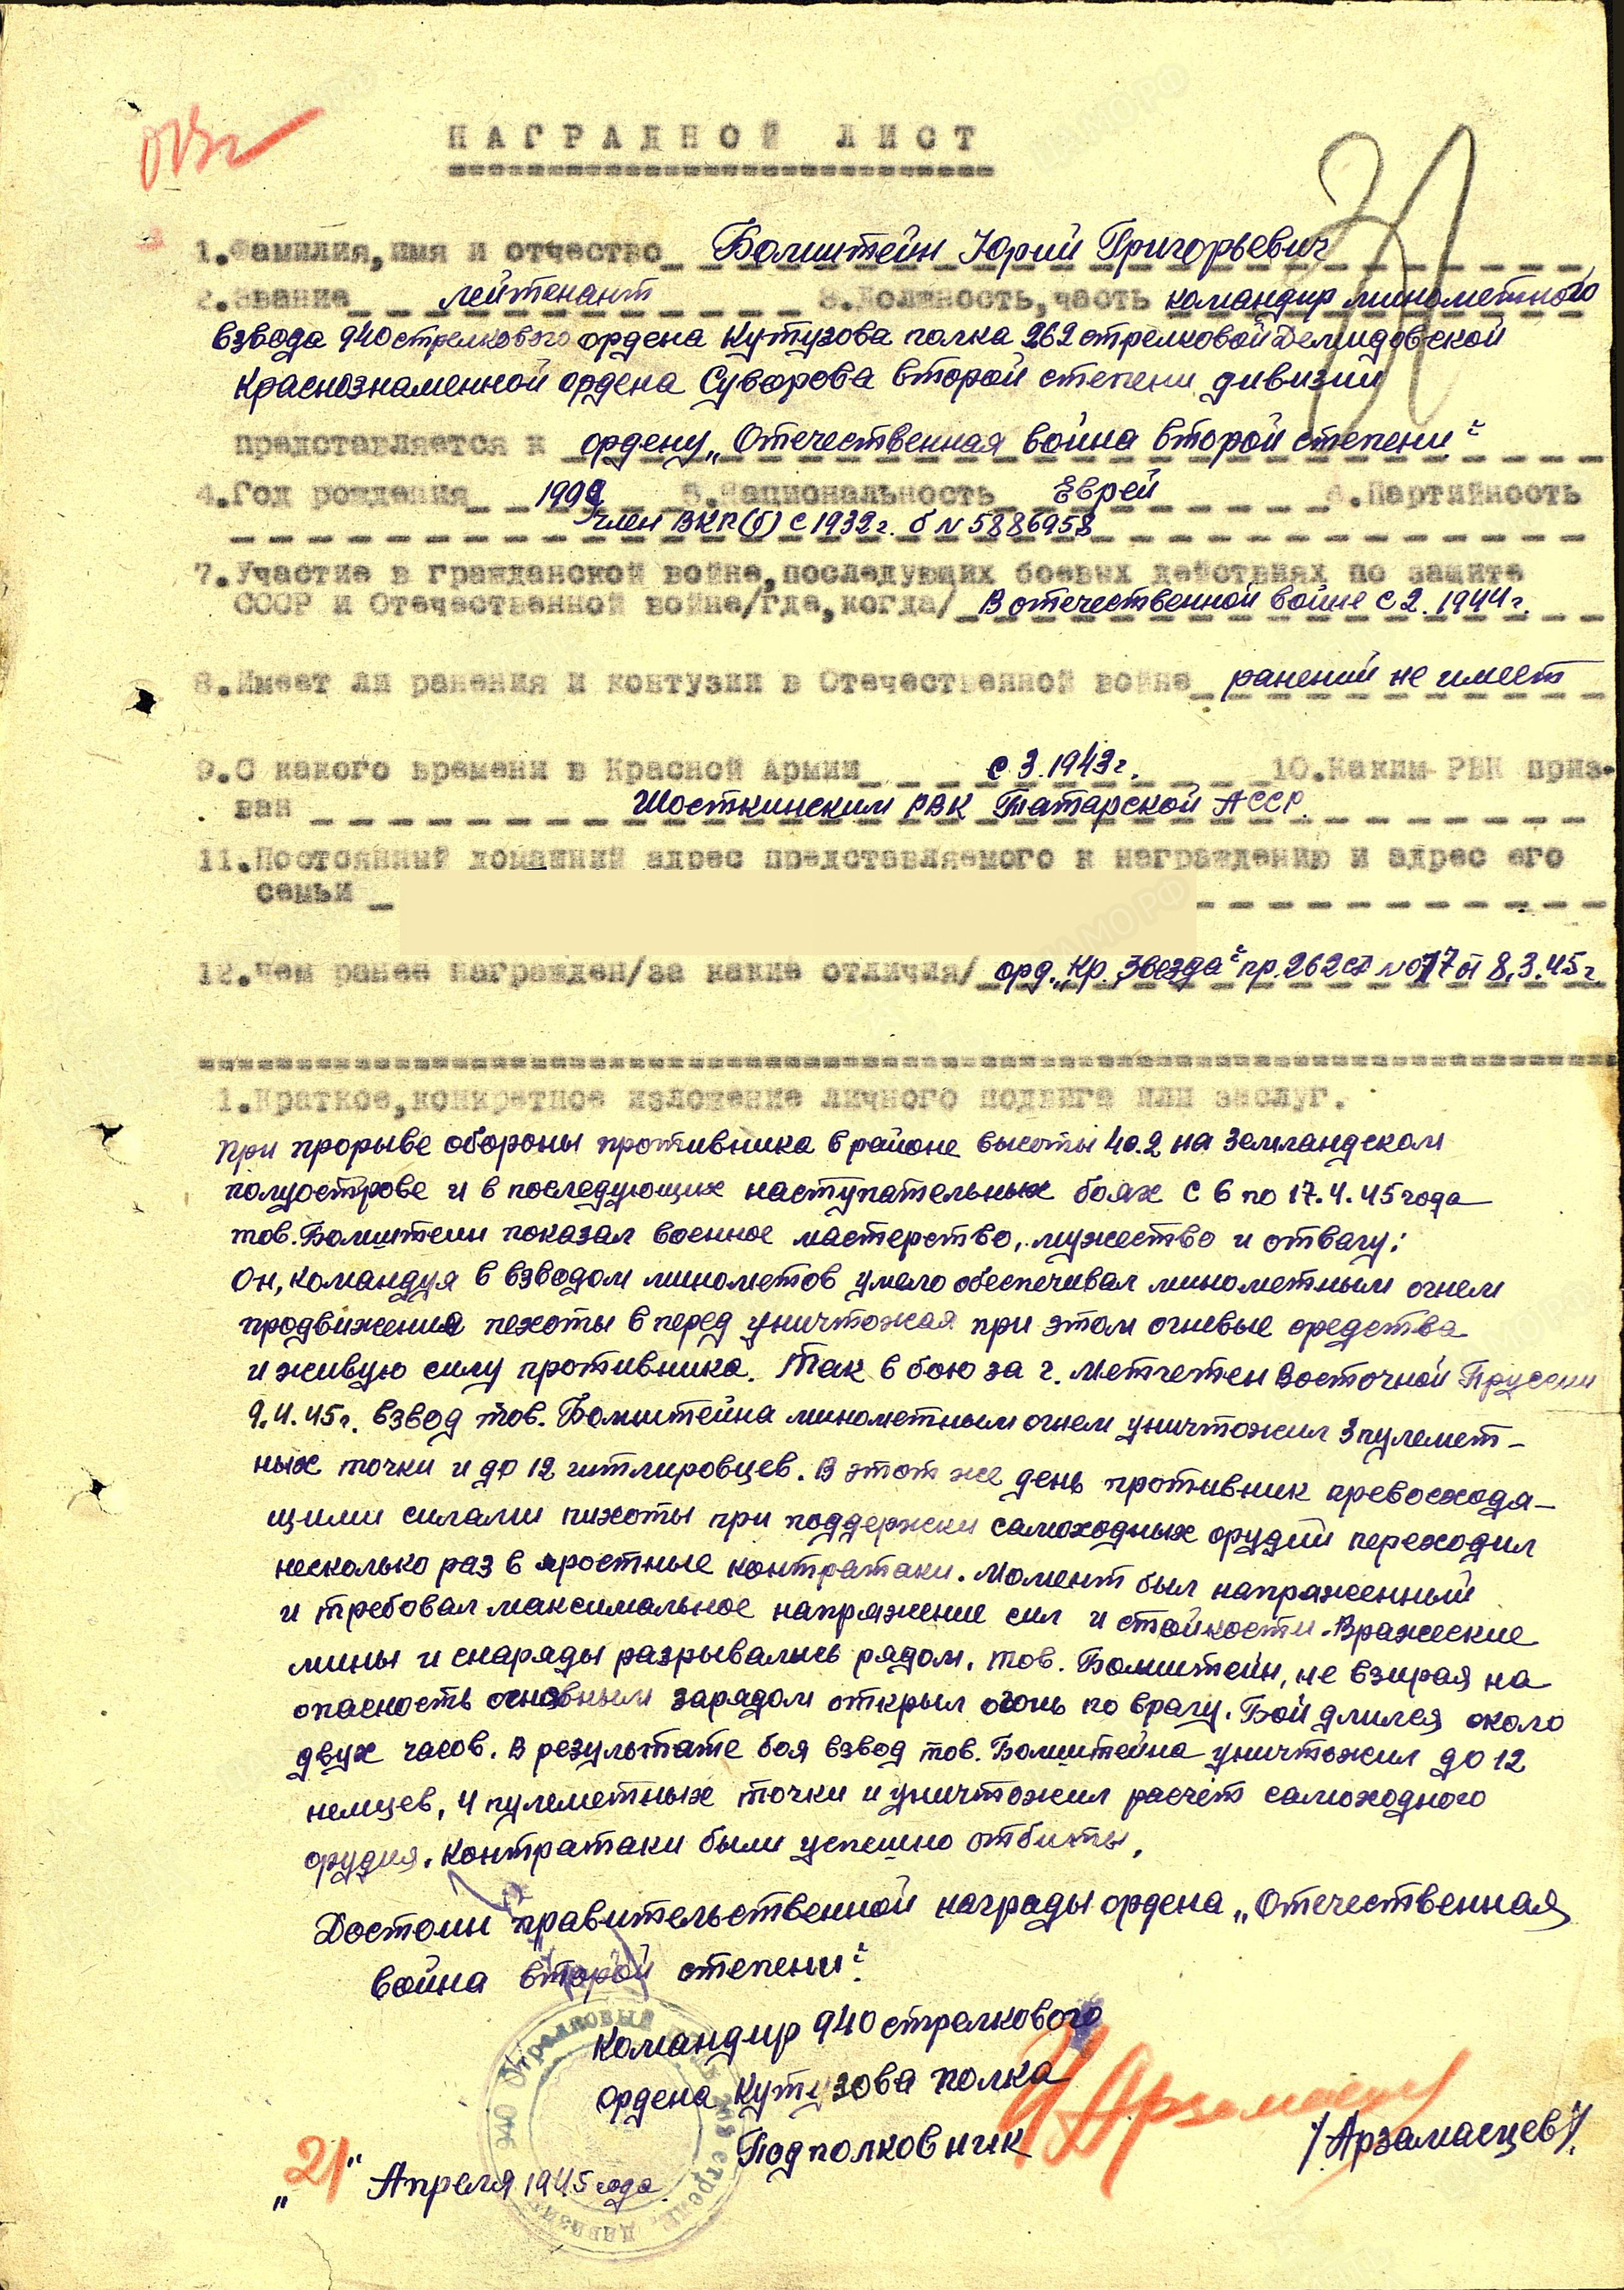 ОВ2
НАГРАДНОЙ ЛИСТ
31
1.Фамилия,имя и отчество Бомштейн Юрий Григорьевич
2.Звание лейтенант 3.Должность,часть командир минометного
взвода 940 стрелкового ордена Кутузова полка 262 стрелковой Демидовской
Краснознаменной ордена Суворова второй степени дивизии
представляется к ордену „Отечественная война второй степени"
4.Год рождения 5.Национальность Еврей 6.Партийность
член ВКП(б) с 1932г. б N 5886958
7.Участие в гражданской войне,последующих боевых действиях по защите
СССР и Отечественной войне/где,когда/ В отечественной войне с 2.1944г.
8.Имеет ли ранения и контузии в Отечественной войне ранений не имеет
9.С какого времени в Красной Армии с 3.1943г. 10.Каким РВК приз-
ван Шосткинским РВК Татарской АССР.
11.Постоянный домашний адрес представляемого к награждению и адрес его
семьи
12.Чем ранее награжден/за какие отличия/ орд. „Кр. Звезда" пр. 262 сд N 077 от 8.3.45г.
1.Краткое,конкретное изложение личного подвига или заслуг.
При прорыве обороны противника в районе высоты 40.2 на Земландском
полуострове и в последующих наступательных боях с 6 по 17.4.45 года
тов. Бомштейн показал военное мастерство, мужество и отвагу:
Он, командуя в взводом минометов умело обеспечивал минометным огнем
продвижения пехоты в перед уничтожая при этом огневые средства
и живую силу противника. Так в бою за г. Метгетен Восточной Пруссии
9.4.45г. взвод тов. Бомштейна минометным огнем уничтожил 3 пулемет-
ных точки и до 12 гитлировцев. В этот же день противник превосходя-
щими силами пихоты при поддержки самоходных орудий переходил
несколько раз в яростные контратаки. Момент был напряженный
и требовал максимальное напряжение сил и стойкости. Вражеские
мины и снаряды разрывались рядом. тов. Бомштейн, не взирая на
опасность основным зарядом открыл огонь по врагу. Бой длился около
двух часов. В результате боя взвод тов. Бомштейна уничтожил до 12
немцев, 4 пулеметных точки и уничтожил расчет самоходного
орудия. Контратаки были успешно отбиты.
Достоин правительственной награды ордена „Отечественная
война второй степени"
Командир 940 стрелкового
ордена Кутузова полка
Подполковник Арзамасцев /Арзамасцев/.
„21" Апреля 1945 года.
940 Стрелковый